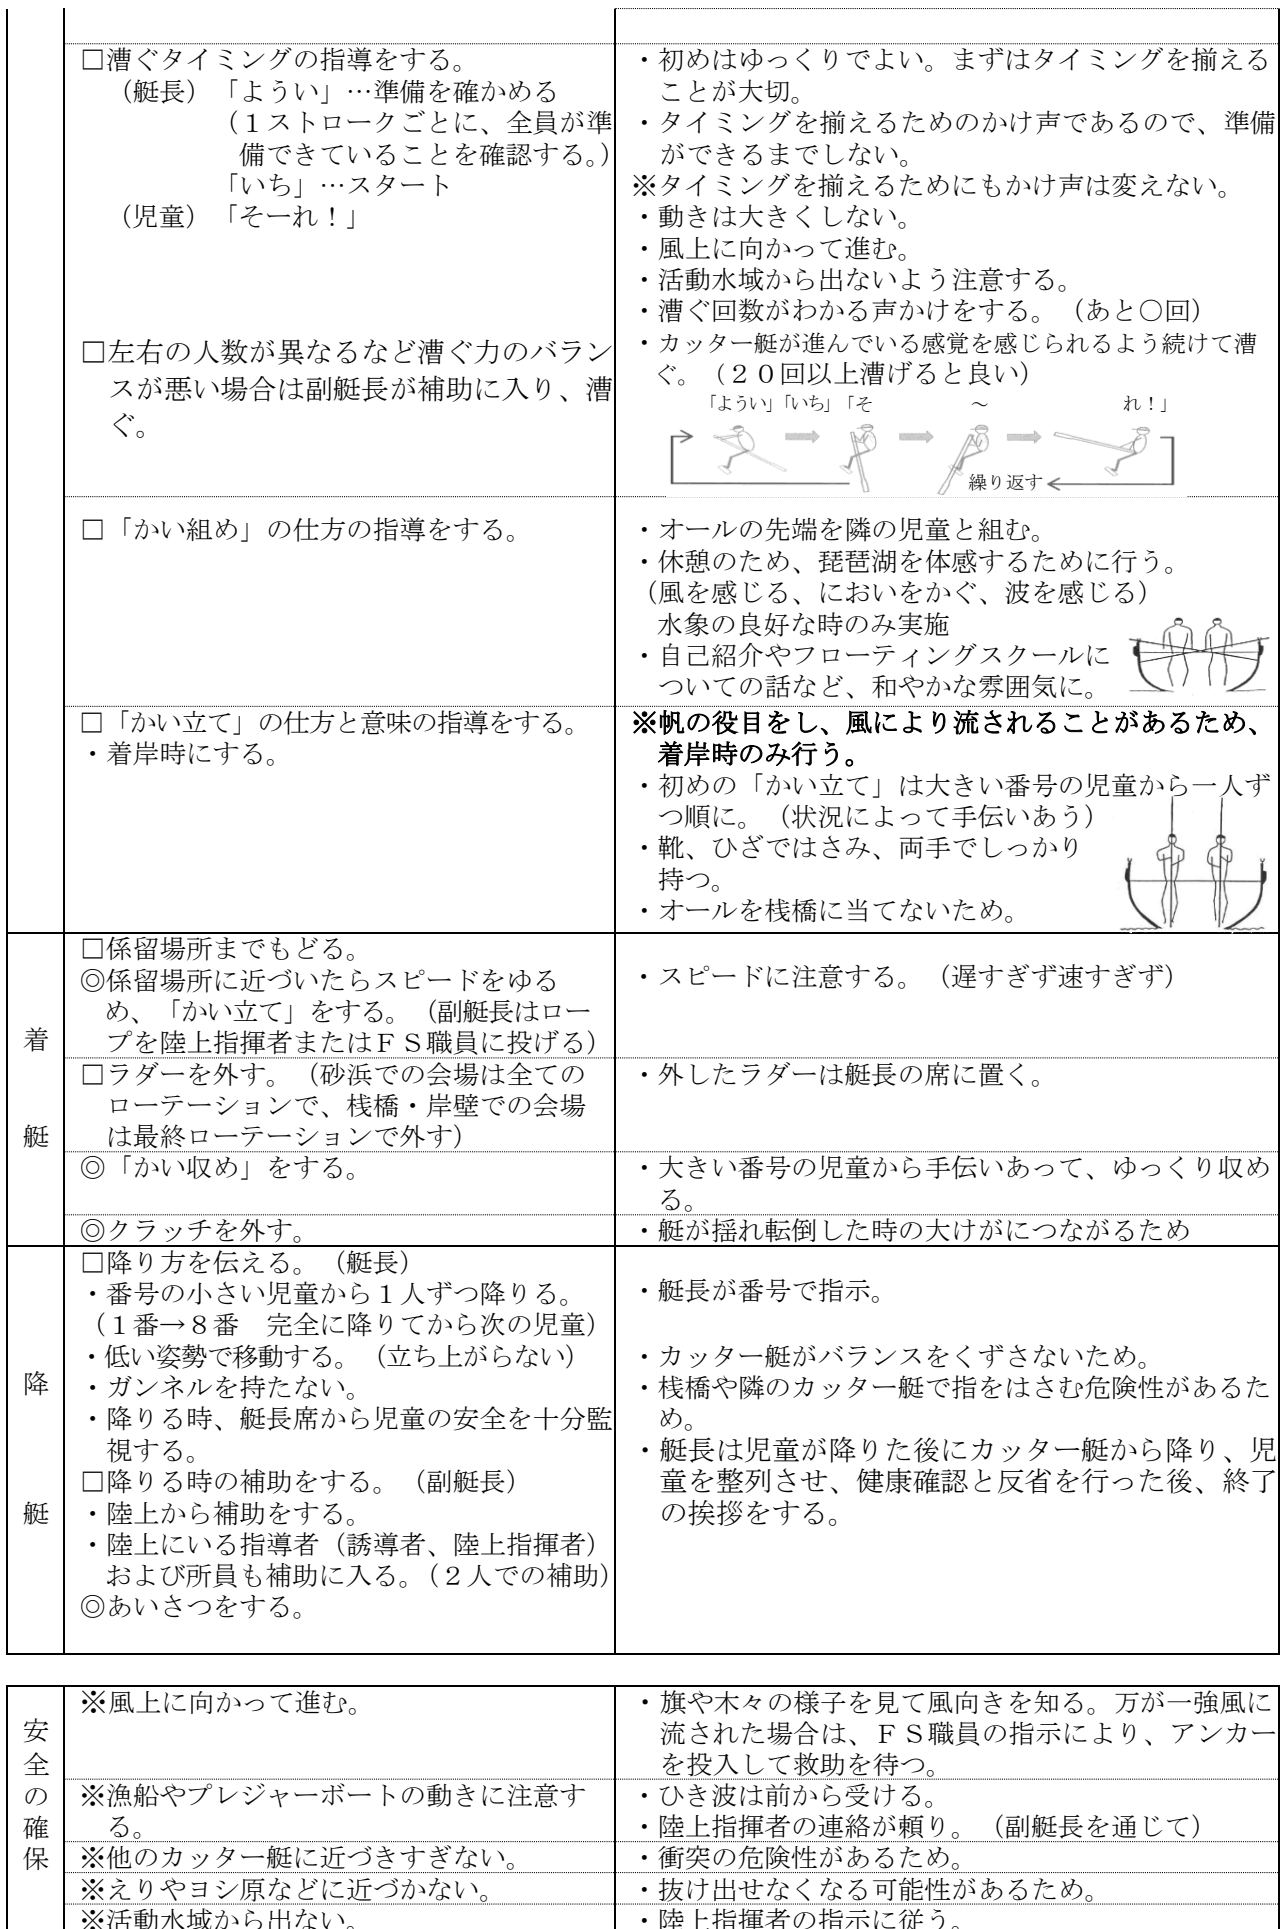 □漕ぐタイミングの指導をする。
（艇長）「ようい」…準備を確かめる
（１ストロークごとに、全員が準
備できていることを確認する。）
「いち」…スタート
（児童）「そーれ！」
□左右の人数が異なるなど漕ぐ力のバラン
スが悪い場合は副艇長が補助に入り、漕
ぐ。
・初めはゆっくりでよい。まずはタイミングを揃える
ことが大切。
・タイミングを揃えるためのかけ声であるので、準備
ができるまでしない。
※タイミングを揃えるためにもかけ声は変えない。
・動きは大きくしない。
・風上に向かって進む。
・活動水域から出ないよう注意する。
・漕ぐ回数がわかる声かけをする。（あと〇回）
・カッター艇が進んでいる感覚を感じられるよう続けて漕
ぐ。（２０回以上漕げると良い）
「ようい」「いち」「そ　～　れ！」
繰り返す
□「かい組め」の仕方の指導をする。
・オールの先端を隣の児童と組む。
・休憩のため、琵琶湖を体感するために行う。
（風を感じる、においをかぐ、波を感じる）
水象の良好な時のみ実施
・自己紹介やフローティングスクールに
ついての話など、和やかな雰囲気に。
□「かい立て」の仕方と意味の指導をする。
・着岸時にする。
※帆の役目をし、風により流されることがあるため、
着岸時のみ行う。
・初めの「かい立て」は大きい番号の児童から一人ず
つ順に。（状況によって手伝いあう）
・靴、ひざではさみ、両手でしっかり
持つ。
・オールを桟橋に当てないため。
着
艇
□係留場所までもどる。
◎係留場所に近づいたらスピードをゆる
め、「かい立て」をする。（副艇長はロー
プを陸上指揮者またはＦＳ職員に投げる）
・スピードに注意する。（遅すぎず速すぎず）
□ラダーを外す。（砂浜での会場は全ての
ローテーションで、桟橋・岸壁での会場
は最終ローテーションで外す）
・外したラダーは艇長の席に置く。
◎「かい収め」をする。
・大きい番号の児童から手伝いあって、ゆっくり収め
る。
◎クラッチを外す。
・艇が揺れ転倒した時の大けがにつながるため
降
艇
□降り方を伝える。（艇長）
・番号の小さい児童から１人ずつ降りる。
（１番→８番　完全に降りてから次の児童）
・低い姿勢で移動する。（立ち上がらない）
・ガンネルを持たない。
・降りる時、艇長席から児童の安全を十分監
視する。
□降りる時の補助をする。（副艇長）
・陸上から補助をする。
・陸上にいる指導者（誘導者、陸上指揮者）
および所員も補助に入る。（２人での補助）
◎あいさつをする。
・艇長が番号で指示。
・カッター艇がバランスをくずさないため。
・桟橋や隣のカッター艇で指をはさむ危険性があるた
め。
・艇長は児童が降りた後にカッター艇から降り、児
童を整列させ、健康確認と反省を行った後、終了
の挨拶をする。
安
全
の
確
保
※風上に向かって進む。
・旗や木々の様子を見て風向きを知る。万が一強風に
流された場合は、ＦＳ職員の指示により、アンカー
を投入して救助を待つ。
※漁船やプレジャーボートの動きに注意す
る。
・ひき波は前から受ける。
・陸上指揮者の連絡が頼り。（副艇長を通じて）
※他のカッター艇に近づきすぎない。
・衝突の危険性があるため。
※えりやヨシ原などに近づかない。
・抜け出せなくなる可能性があるため。
※活動水域から出ない。
・陸上指揮者の指示に従う。